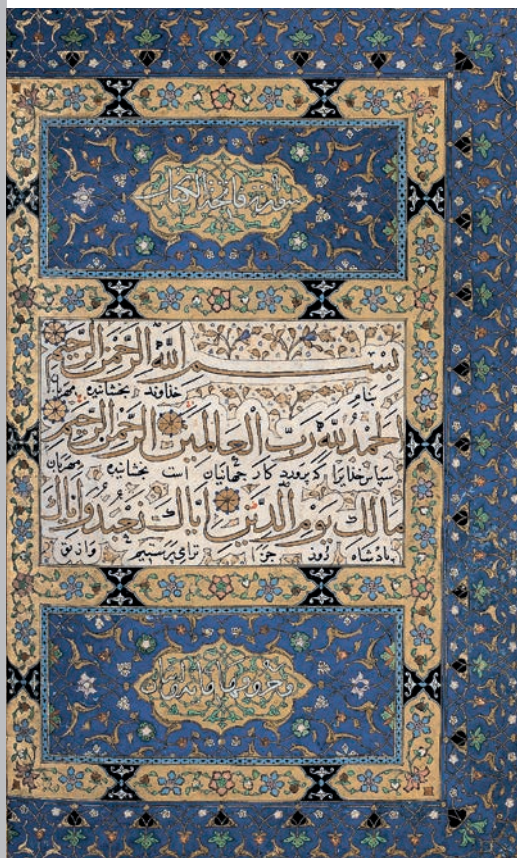 سورة فاتحة الكتاب
بِسْمِ اللهِ الرَّحْمٰنِ الرَّحِيمِ
بنام خداوند بخشاینده مهربان
اَلْحَمْدُ لِلّٰهِ رَبِّ الْعَالَمِينَ الرَّحْمٰنِ الرَّحِيمِ
سپاس خدایرا که پروردکار جهانیان است بخشاینده مهربان
مَالِكِ يَوْمِ الدِّينِ اِيَّاكَ نَعْبُدُ وَاِيَّاكَ
بادشاه روز جزا ترا می پرستیم و از تو
وحروفها